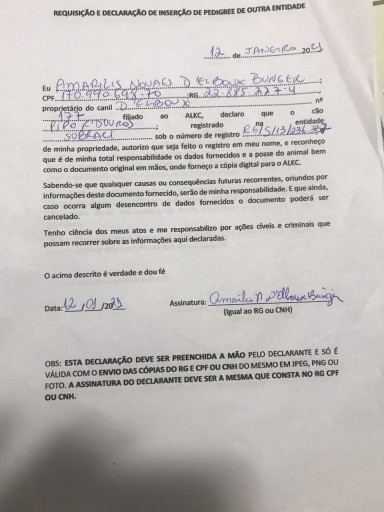 REQUISIÇÃO E DECLARAÇÃO DE INSERÇÃO DE PEDIGREE DE OUTRA ENTIDADE
12 de JANEIRO 2021
Eu AMARILIS NOVAES D'ELBOUX BUNGER
CPF :RG
proprietário do canil D'ELBOUX nº
177 filiado ao ALKC, declaro que o cão
registrado na entidade,
SOBRACI sob o número de registro
de minha propriedade, autorizo que seja feito o registro em meu nome, e reconheço
que é de minha total responsabilidade os dados fornecidos e a posse do animal bem
como o documento original em mãos, onde forneço a cópia digital para o ALKC.
Sabendo-se que quaisquer causas ou consequências futuras recorrentes, oriundos por
informações deste documento fornecido, serão de minha responsabilidade. E que ainda,
caso ocorra algum desencontro de dados fornecidos o documento poderá ser
cancelado.
Tenho ciência dos meus atos e me responsabilizo por ações cíveis e criminais que
possam recorrer sobre as informações aqui declaradas.
O acima descrito é verdade e dou fé
Data: 12 /01/2021 Assinatura: Amarilis N D'Elboux Bunger
(Igual ao RG ou CNH)
OBS: ESTA DECLARAÇÃO DEVE SER PREENCHIDA A MÃO PELO DECLARANTE E SÓ É
VÁLIDA COM O ENVIO DAS CÓPIAS DO RG E CPF OU CNH DO MESMO EM JPEG, PNG OU
FOTO. A ASSINATURA DO DECLARANTE DEVE SER A MESMA QUE CONSTA NO RG CPF
OU CNH.